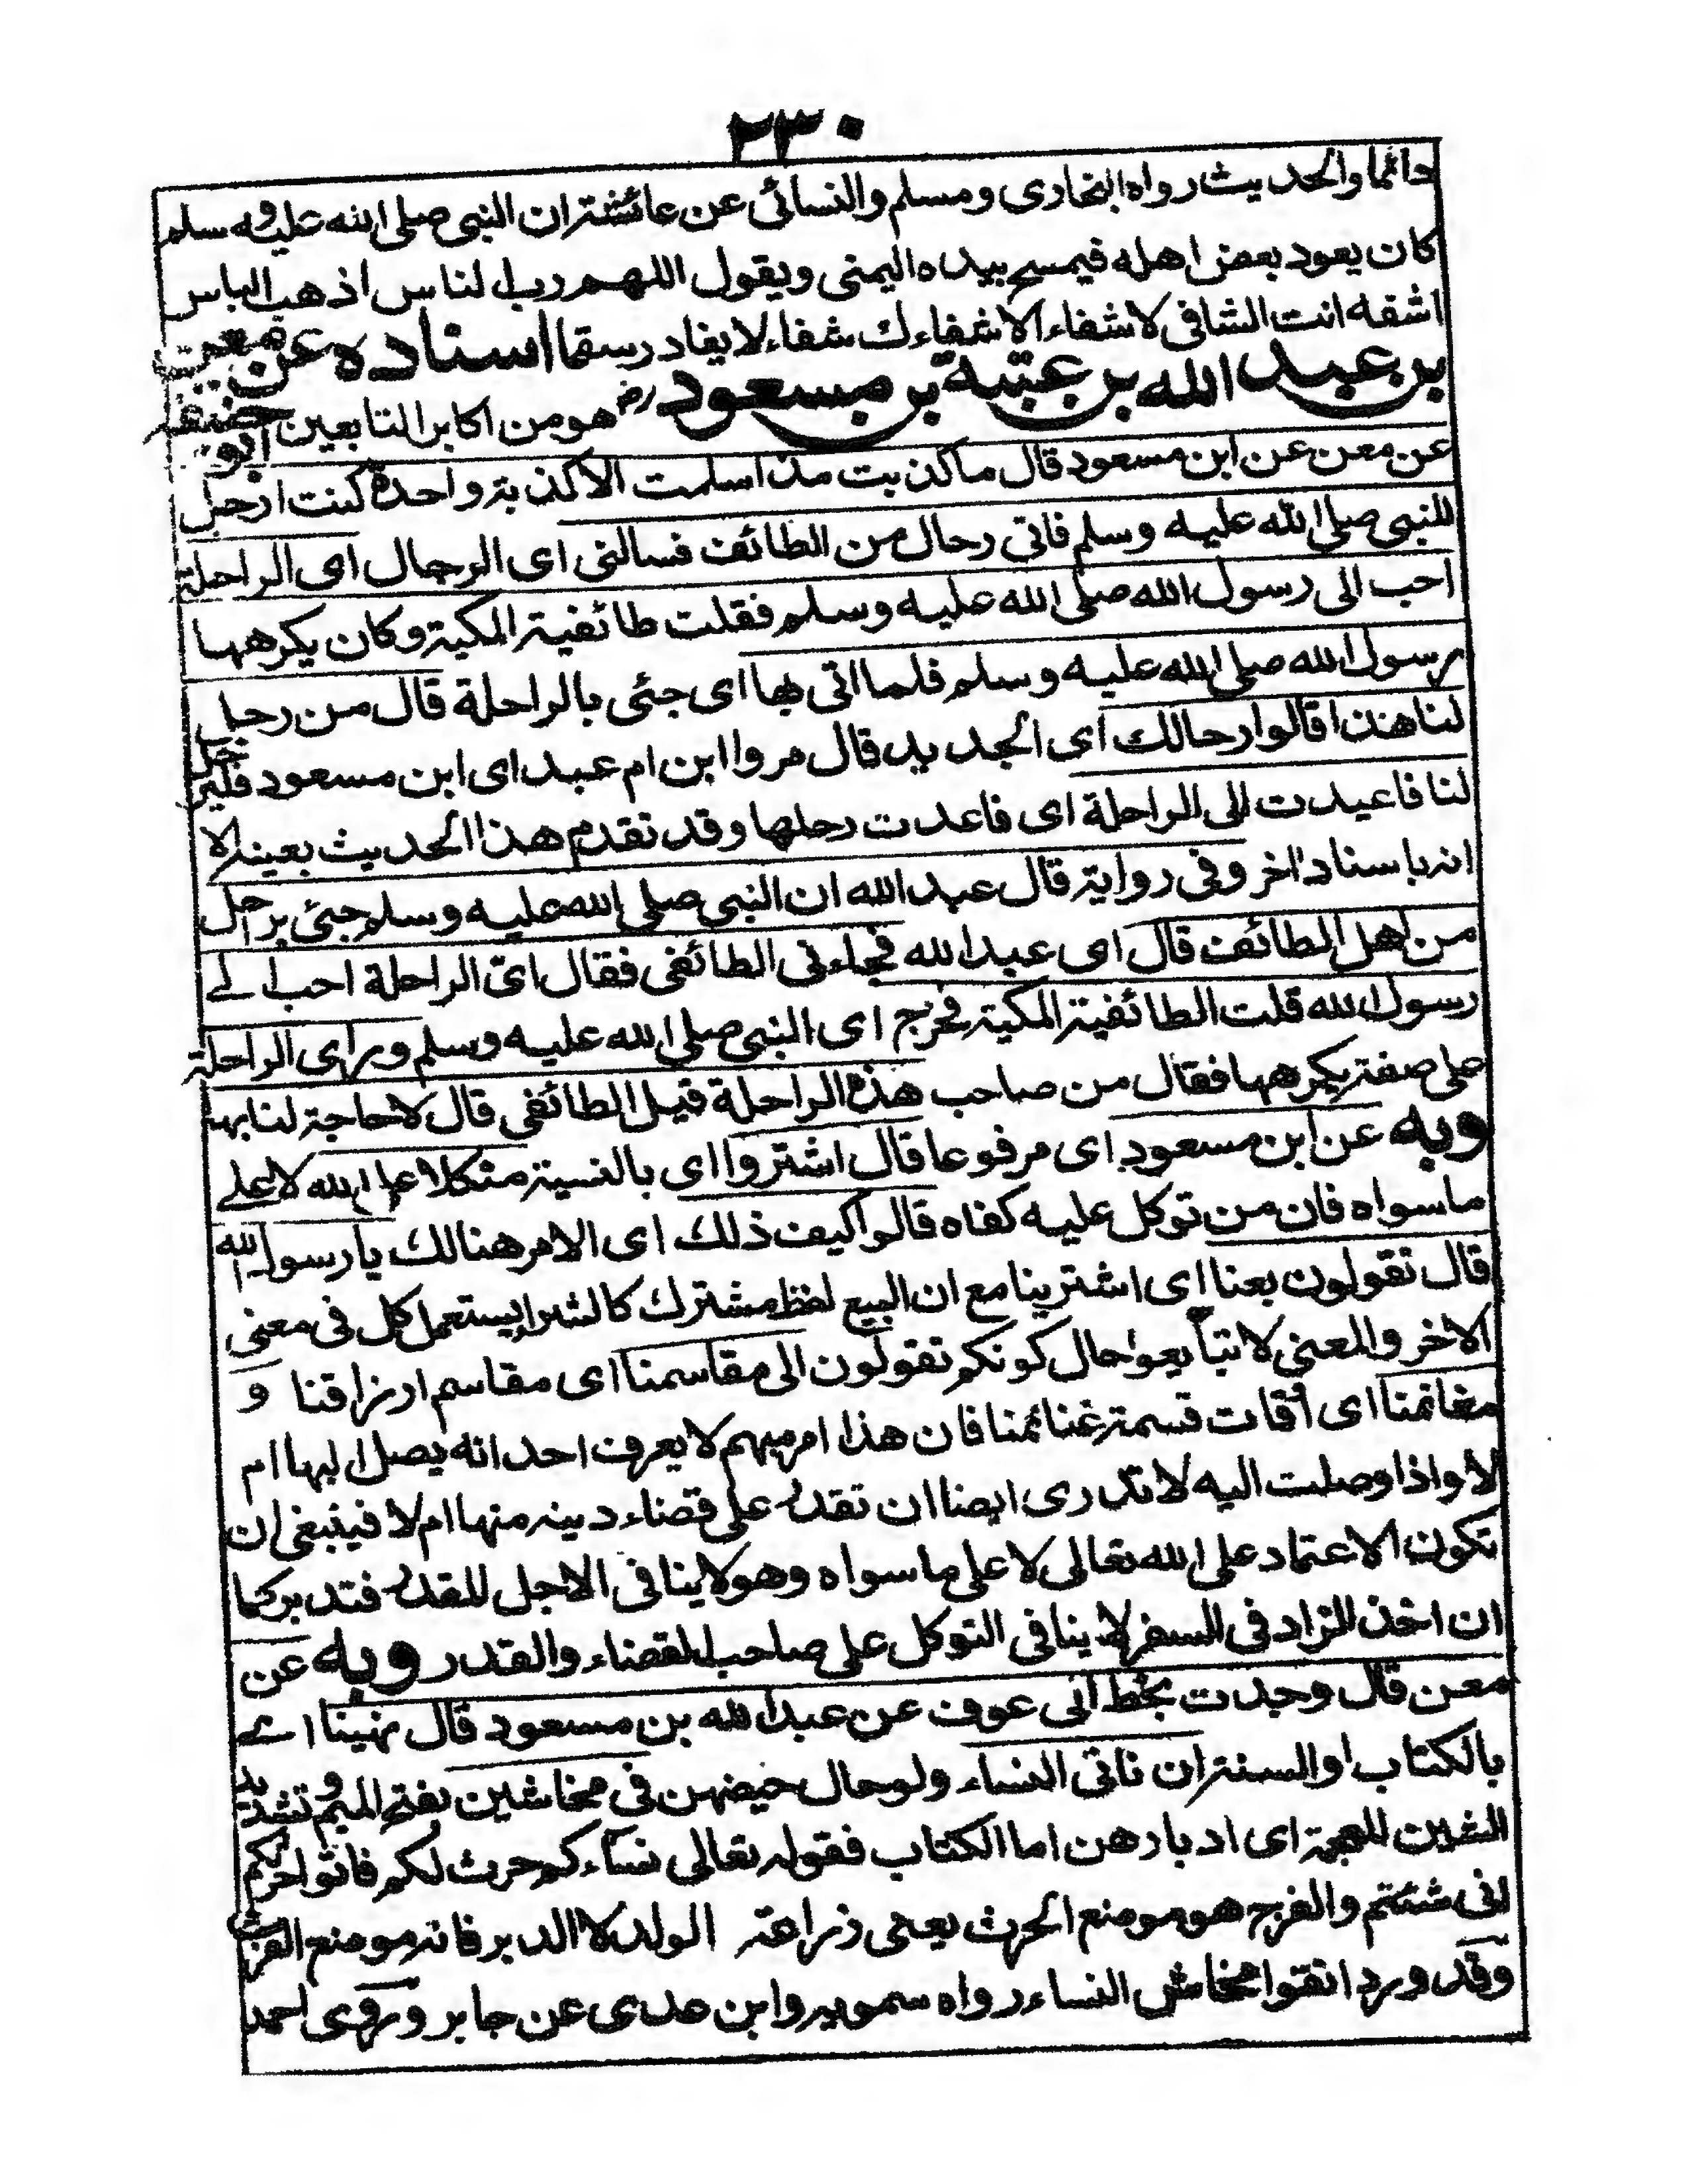 ٢٣٠
دائما والحديث رواه البخارى ومسلم والنسائى عن عائشة ان النبى صلى الله عليه وسلم
كان يعود بعض اهله فيمسح بيده اليمنى ويقول اللهم رب الناس اذهب الباس
اشفه انت الشافى لا شفاء الا شفاءك شفاء لا يغادر سقما اسناده عن معن
بن عبد الله بن عتبة بن مسعود رض هو من اكابر التابعين ابو حنيفة
عن معن عن ابن مسعود قال ما كذبت مذ اسلمت الا كذبة واحدة كنت ارحل
للنبى صلى الله عليه وسلم فاتى رحال من الطائف فسالنى اى الرحال اى الراحلة
احب الى رسول الله صلى الله عليه وسلم فقلت طائفية المكية وكان يكرهها
رسول الله صلى الله عليه وسلم فلما اتى بها اى جئى بالراحلة قال من رحل
لنا هذا قالوا رحالك اى الجديد قال مروا ابن ام عبد اى ابن مسعود فليرحل
لنا فاعيدت الى الراحلة اى فاعدت رحلها وقد تقدم هذا الحديث بعينه الا
انه باسناد اخر وفى رواية قال عبد الله ان النبى صلى الله عليه وسلم جئ برحل
من اهل الطائف قال اى عبد الله فجاءنى الطائفى فقال اى الراحلة احب الے
رسول الله قلت الطائفية المكية فخرج اى النبى صلى الله عليه وسلم وراى الراحلة
على صفة يكرهها فقال من صاحب هذه الراحلة قيل الطائفى قال لا حاجة لنا بها
وبه عن ابن مسعود اى مرفوعا قال اشتروا اى بالنسية متكلا على الله لا علے
ما سواه فان من توكل عليه كفاه قالوا كيف ذلك اى الامر هنالك يا رسول الله
قال تقولون بعنا اى اشترينا مع ان البيع لفظ مشترك كالشرا يستعمل كل فى معنى
الاخر والمعنى لا تبايعوا حال كونكم تقولون الى مقاسمنا اى مقاسم ارزاقنا و
مغانمنا اى اوقات قسمة غنائمنا فان هذا امر مبهم لا يعرف احد انه يصل اليها ام
لا واذا وصلت اليه لا تدرى ايضا ان تقدر على قضاء دينه منها ام لا فينبغى ان
تكون الاعتماد على الله تعالى لا على ما سواه وهو لا ينافى الاجل المقدر فتدبر كما
ان اخذ الزاد فى السفر لا ينافى التوكل على صاحب القضاء والقدر وبه عن
معن قال وجدت بخط ابى عوف عن عبد الله بن مسعود قال نهينا اے
بالكتاب او السنة ان ناتى النساء ولو حال حيضهن فى مخاشين بفتح الميم وتشديد
الشين المعجمة اى ادبارهن اما الكتاب فقوله تعالى نساءكم حرث لكم فاتوا حرثكم
انى شئتم والفرج هو موضع الحرث يعنى زراعة الولد لا الدبر فانه موضع الفرث
وقد ورد اتقوا مخاش النساء رواه سمويه وابن عدى عن جابر وروى احمد